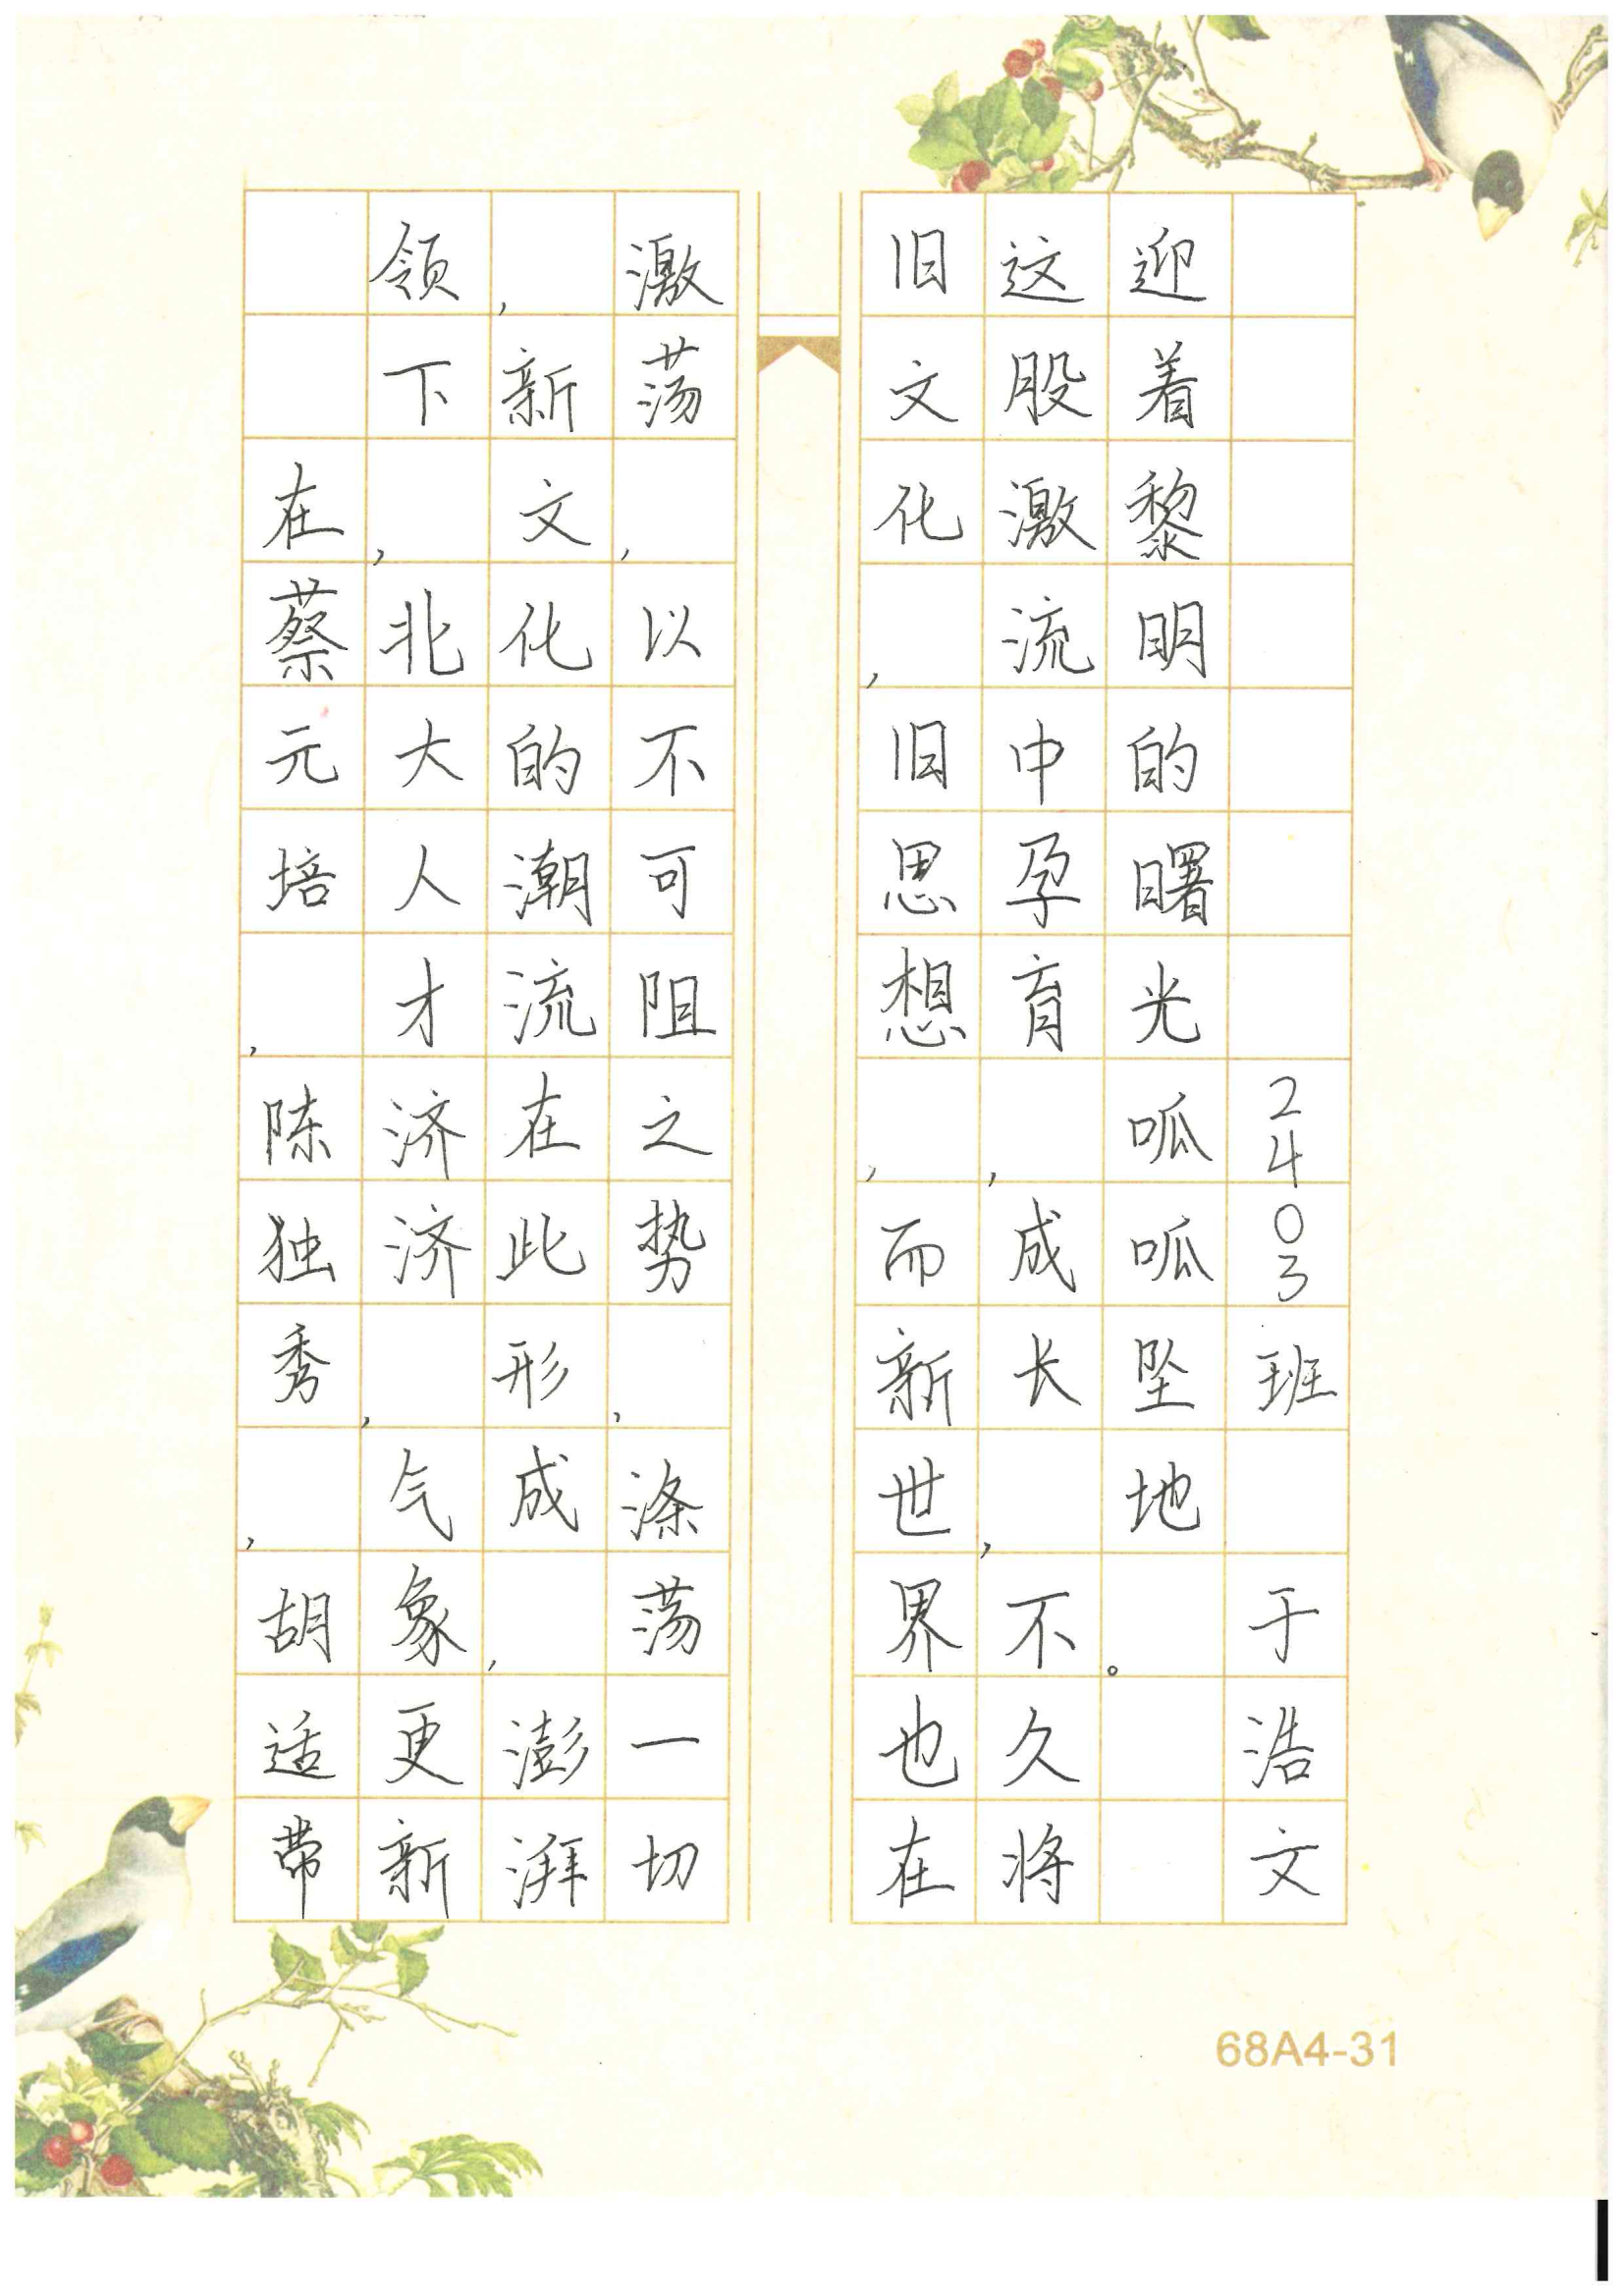 在蔡元培,陈独秀,胡适带
领下,北大人才济济,气象更新
,新文化的潮流在此形成,澎湃
激荡,以不可阻之势,涤荡一切
旧文化,旧思想,而新世界也在
这股激流中孕育,成长,不久将
迎着黎明的曙光呱呱坠地。
2403班 于浩文
68A4-31